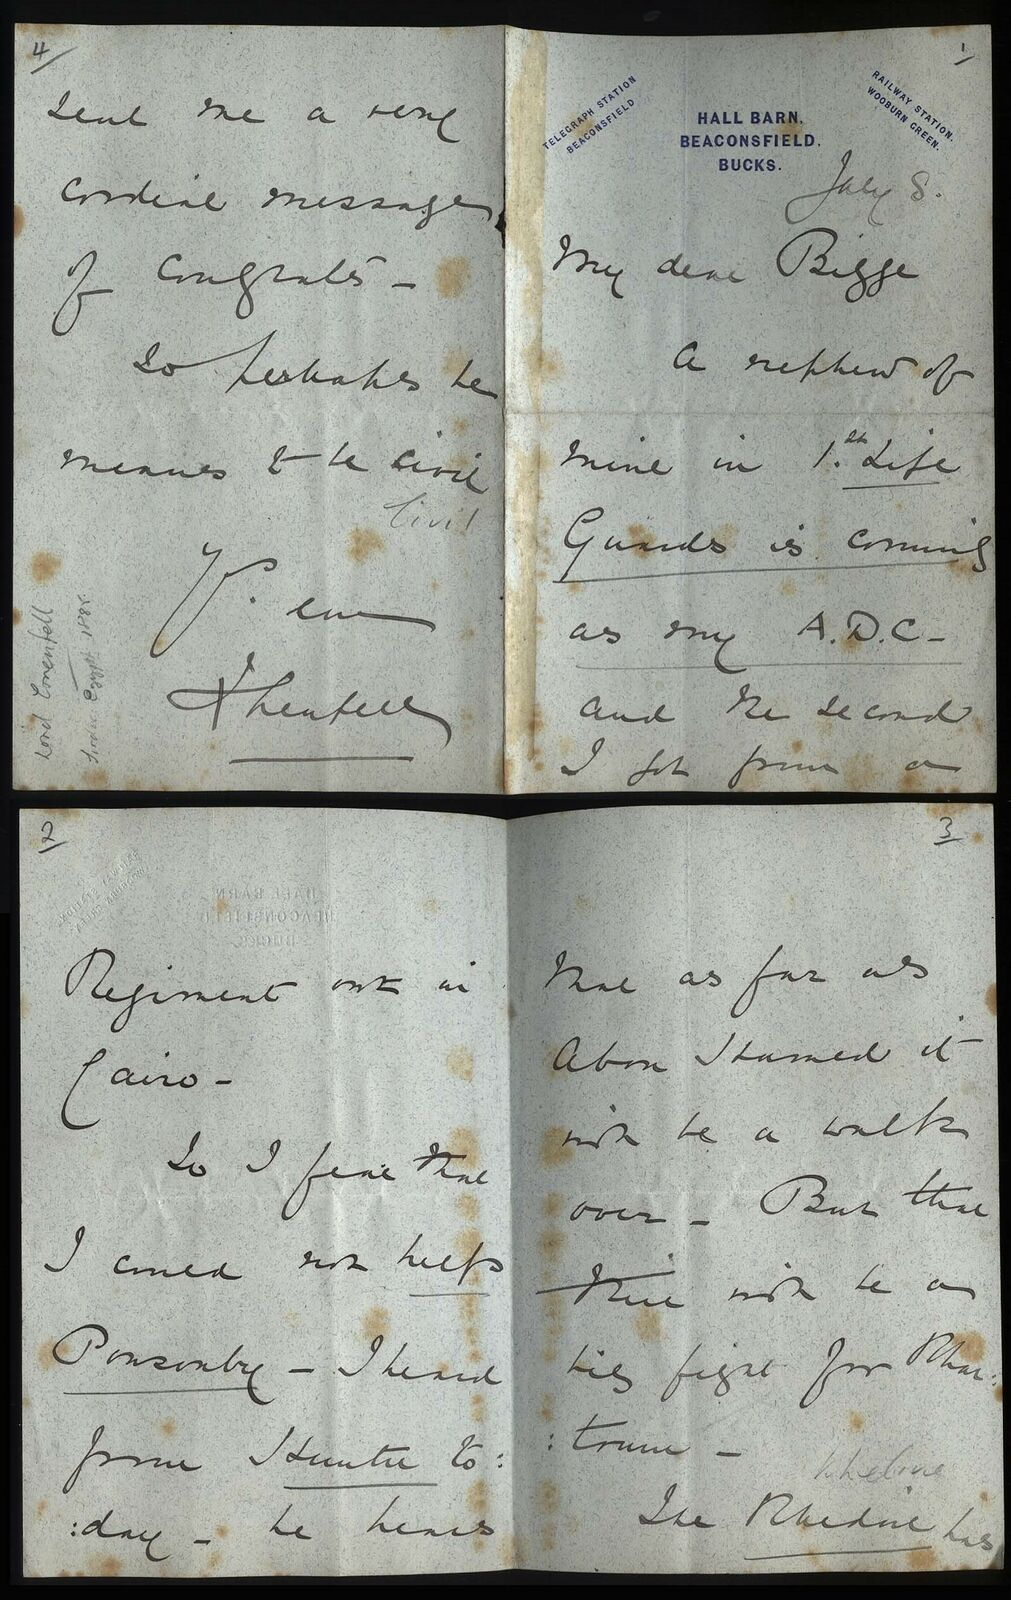 1/
TELEGRAPH STATION
BEACONSFIELD
HALL BARN,
BEACONSFIELD.
BUCKS.
RAILWAY STATION.
WOOBURN GREEN.
July 8.
My dear Bigge
A nephew of
mine in 1st Life
Guards is coming
as my A.D.C -
and the second
I got from a
2/
Regiment out in
Cairo -
So I fear that
I could not help
Ponsonby - I heard
from Hunter to:
:day - he hears
3/
that as far as
Abou Hamed it
will be a walk
over - But that
will be a
big fight for Khar:
:toum -
The Khedive has
4/
sent me a very
cordial message
of Congrats -
So perhaps he
means to be Civil
Civil
Yrs. ever
Grenfell
Lord Grenfell
Sirdar Egypt 1885